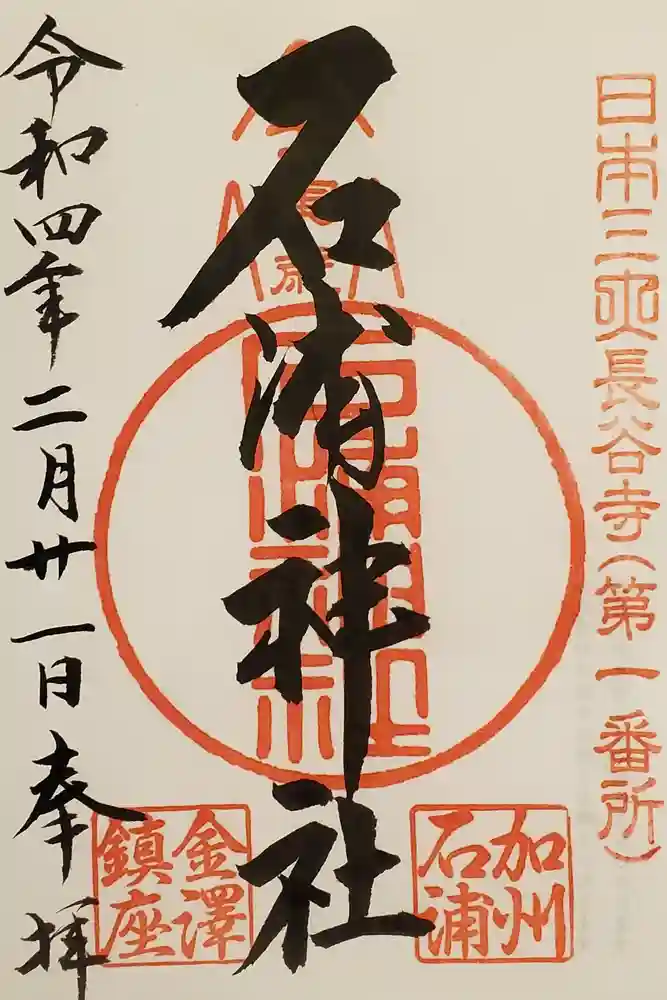 日本三所長谷寺（第一番所）
石浦神社
石浦神社
加州
石浦
金澤
鎮座
令和四年二月廿一日奉拝